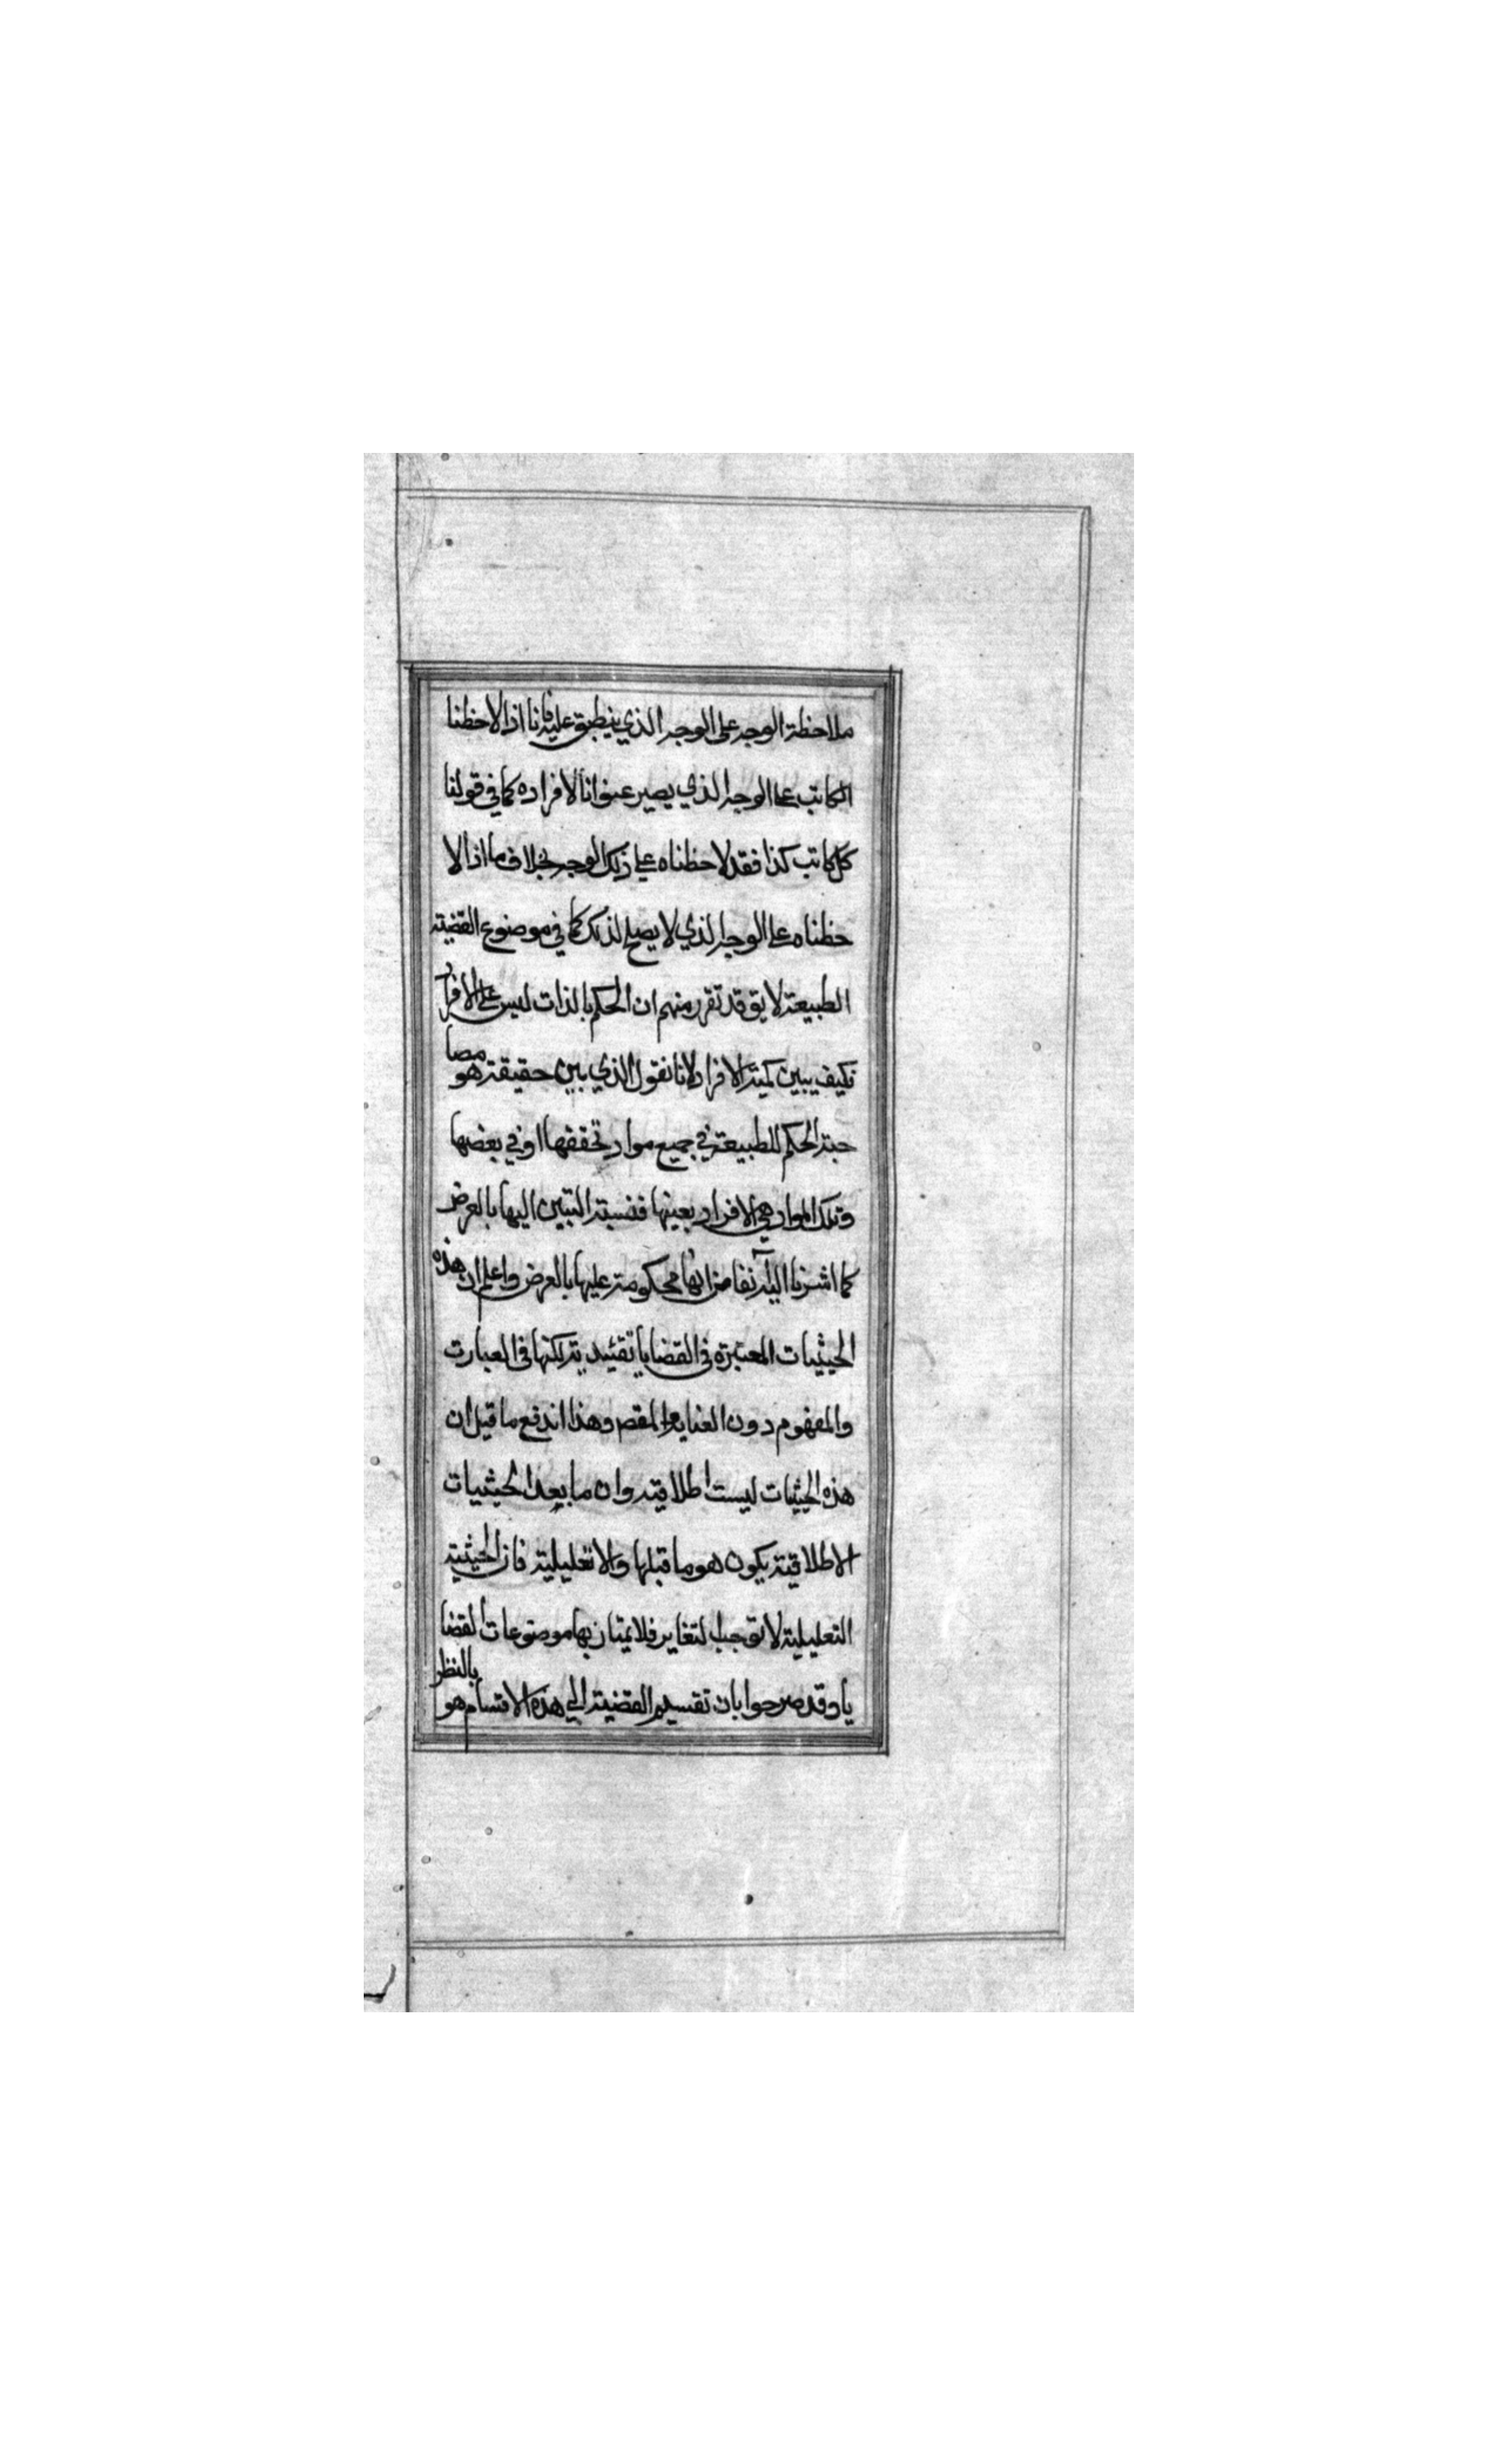 ملاحظة الوجه على الوجه الذي ينطبق عليه فانا اذا لاحظنا
الكاتب على الوجه الذي يصير عنوانا لافراده كما في قولنا
كل كاتب كذا فقد لاحظناه على ذلك الوجه بخلاف ما اذا لا
حظناه على الوجه الذي لا يصلح لذلك كما في موضوع القضية
الطبيعة لا يق قد تقرر منهم ان الحكم بالذات ليس على الافراد
فكيف يبين كمية الافراد لانا نقول الذي بين حقيقة هو مصا
حبة الحكم للطبيعة في جميع مواد تحققها او في بعضها
وتلك المواد هي الافراد بعينها فنسبة التبين اليها بالعرض
كما اشرنا اليه آنفا من انها محكومة عليها بالعرض واعلم ان هذه
الحيثيات المعتبرة في القضايا تقئيدية لكنها في العبارت
والمفهوم دون العناية والمقصد وهذا اندفع ما قيل ان
هذه الحيثيات ليست اطلاقية وان ما بعد الحيثيات
الاطلاقية يكون هو ما قبلها والا تعليلية فان الحيثية
التعليلية لا توجب التغاير فلا يمتاز بها موضوعات القضا
يا وقد صرحوا بان تقسيم القضية الي هذه الاقسام هو بالنظر